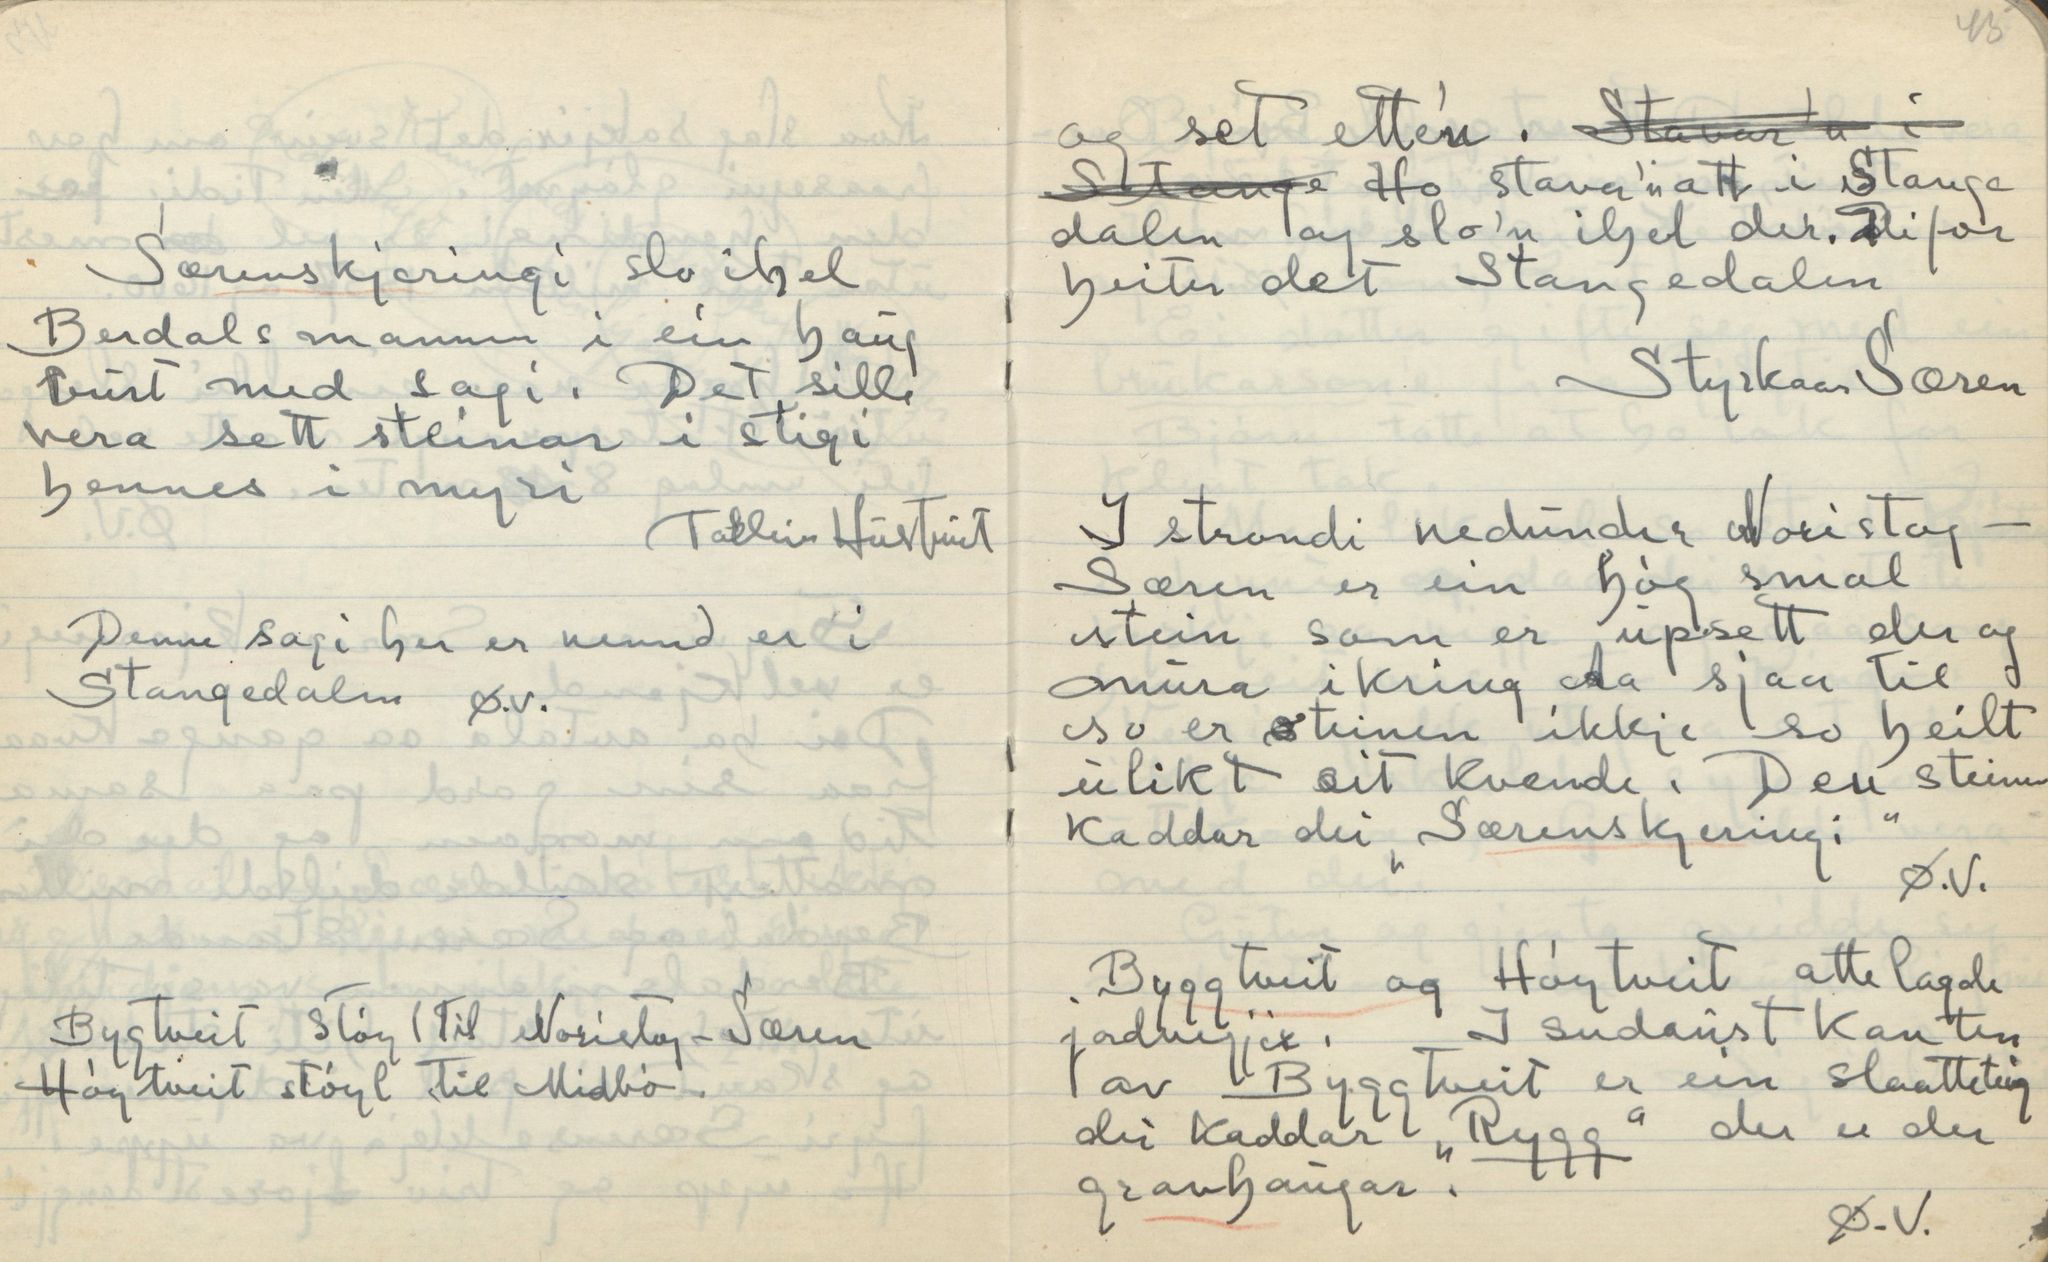 Særenskjeringi slo ihel
Berdalsmannen i ein haug
burt med sagi. Det sille
vera sett steinar i stigi
hennes i myri
Tallein Hustveit
Denne sagi her er nemnd er i
Stangedalen Ø.V.
Bygtveit støyl til Noristog-Særen
Høgtveit støyl til Midbø.
43
og set etter'n. Stavar'n i
Stange Ho stavar'n att i Stange
dalen og slo'n ihel der. Difor
heiter det Stangedalen
Styrkaar Særen
I strondi nedunder Noristog-
Særen er ein høg smal
stein som er uppsett der og
mura ikring Aa sjaa til
so er steinen ikkje so heilt
ulikt eit kvende. Den steinen
kaddar dei "Særenskjeringi"
Ø.V.
Byggtveit og Høgtveit atte lagde
jadneggjer. I sudaust kanten
av Byggtveit er ein slaatteteig
dei kaddar "Rygg" der er der
gravhaugar.
Ø.V.